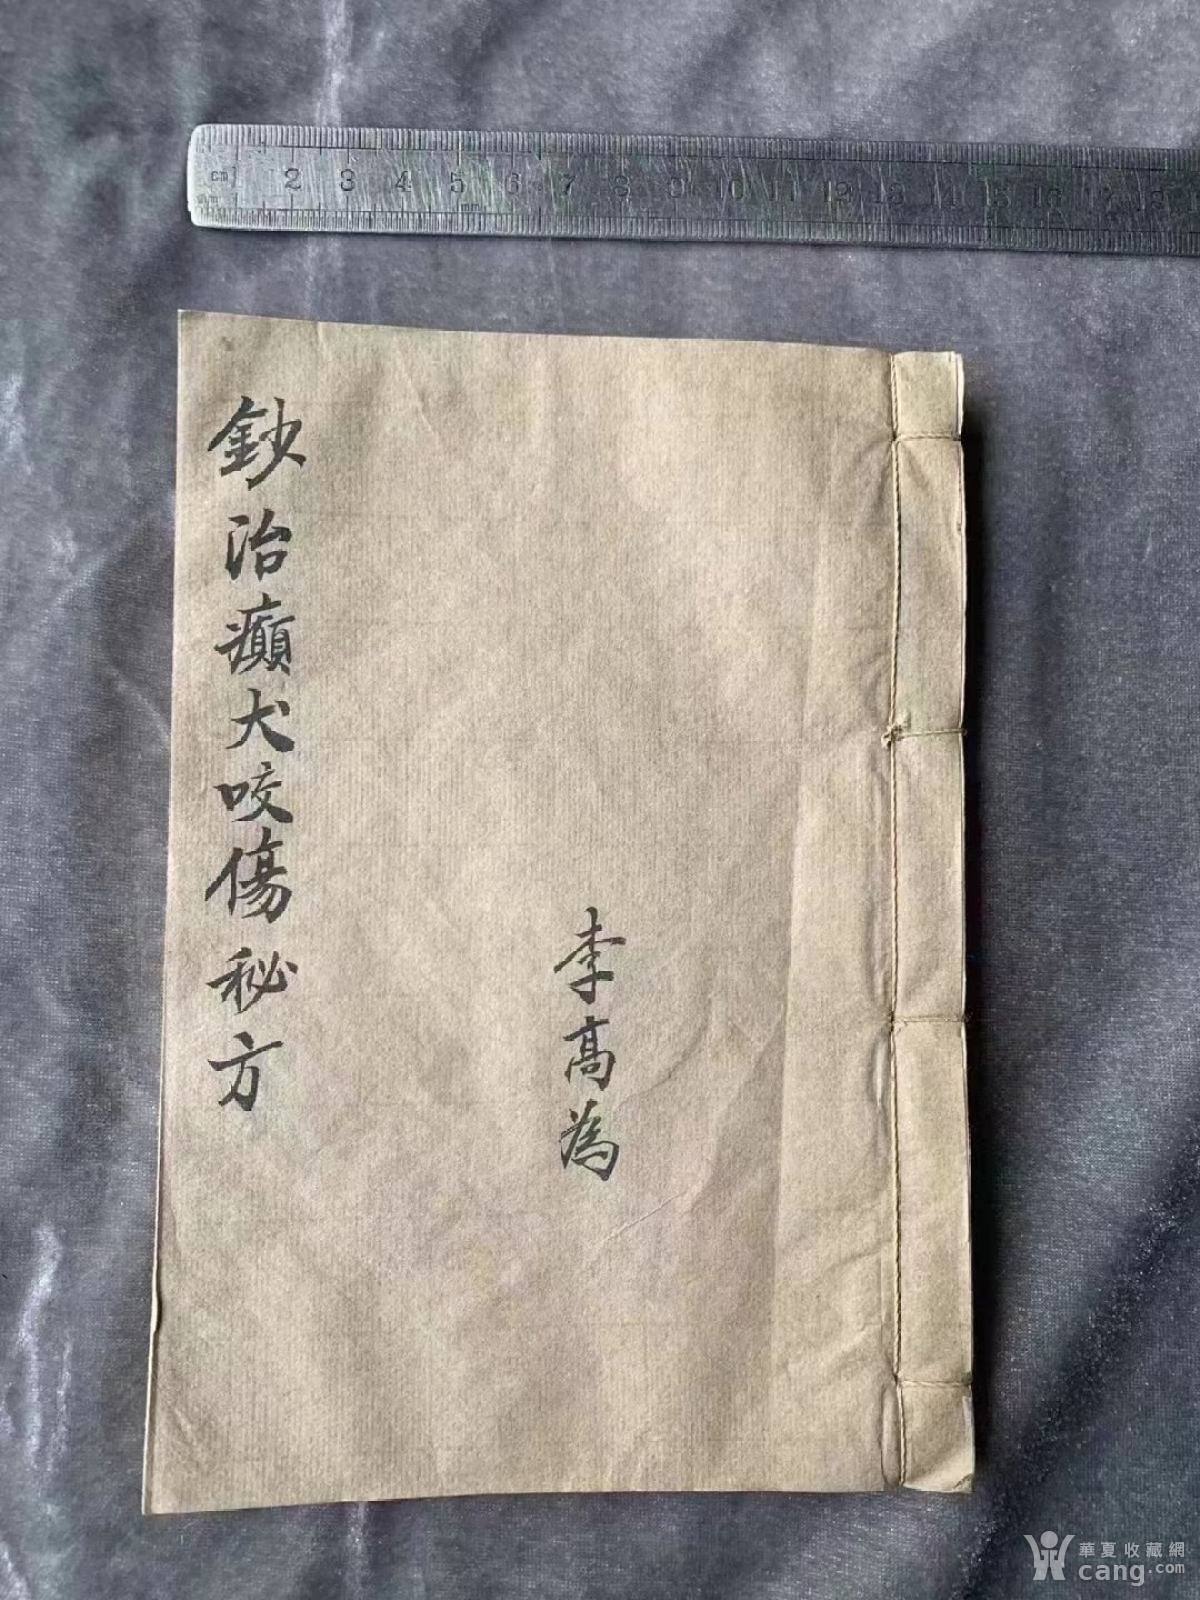 cm 2 3 4 5 6 7 8 9 10 11 12 13 14 15 16 17 18
mm
鈔治癲犬咬傷秘方
李高為
華夏收藏網
cang.com